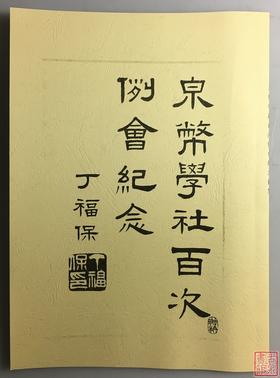 泉幣學社百次
例會紀念
丁福保
丁福保印